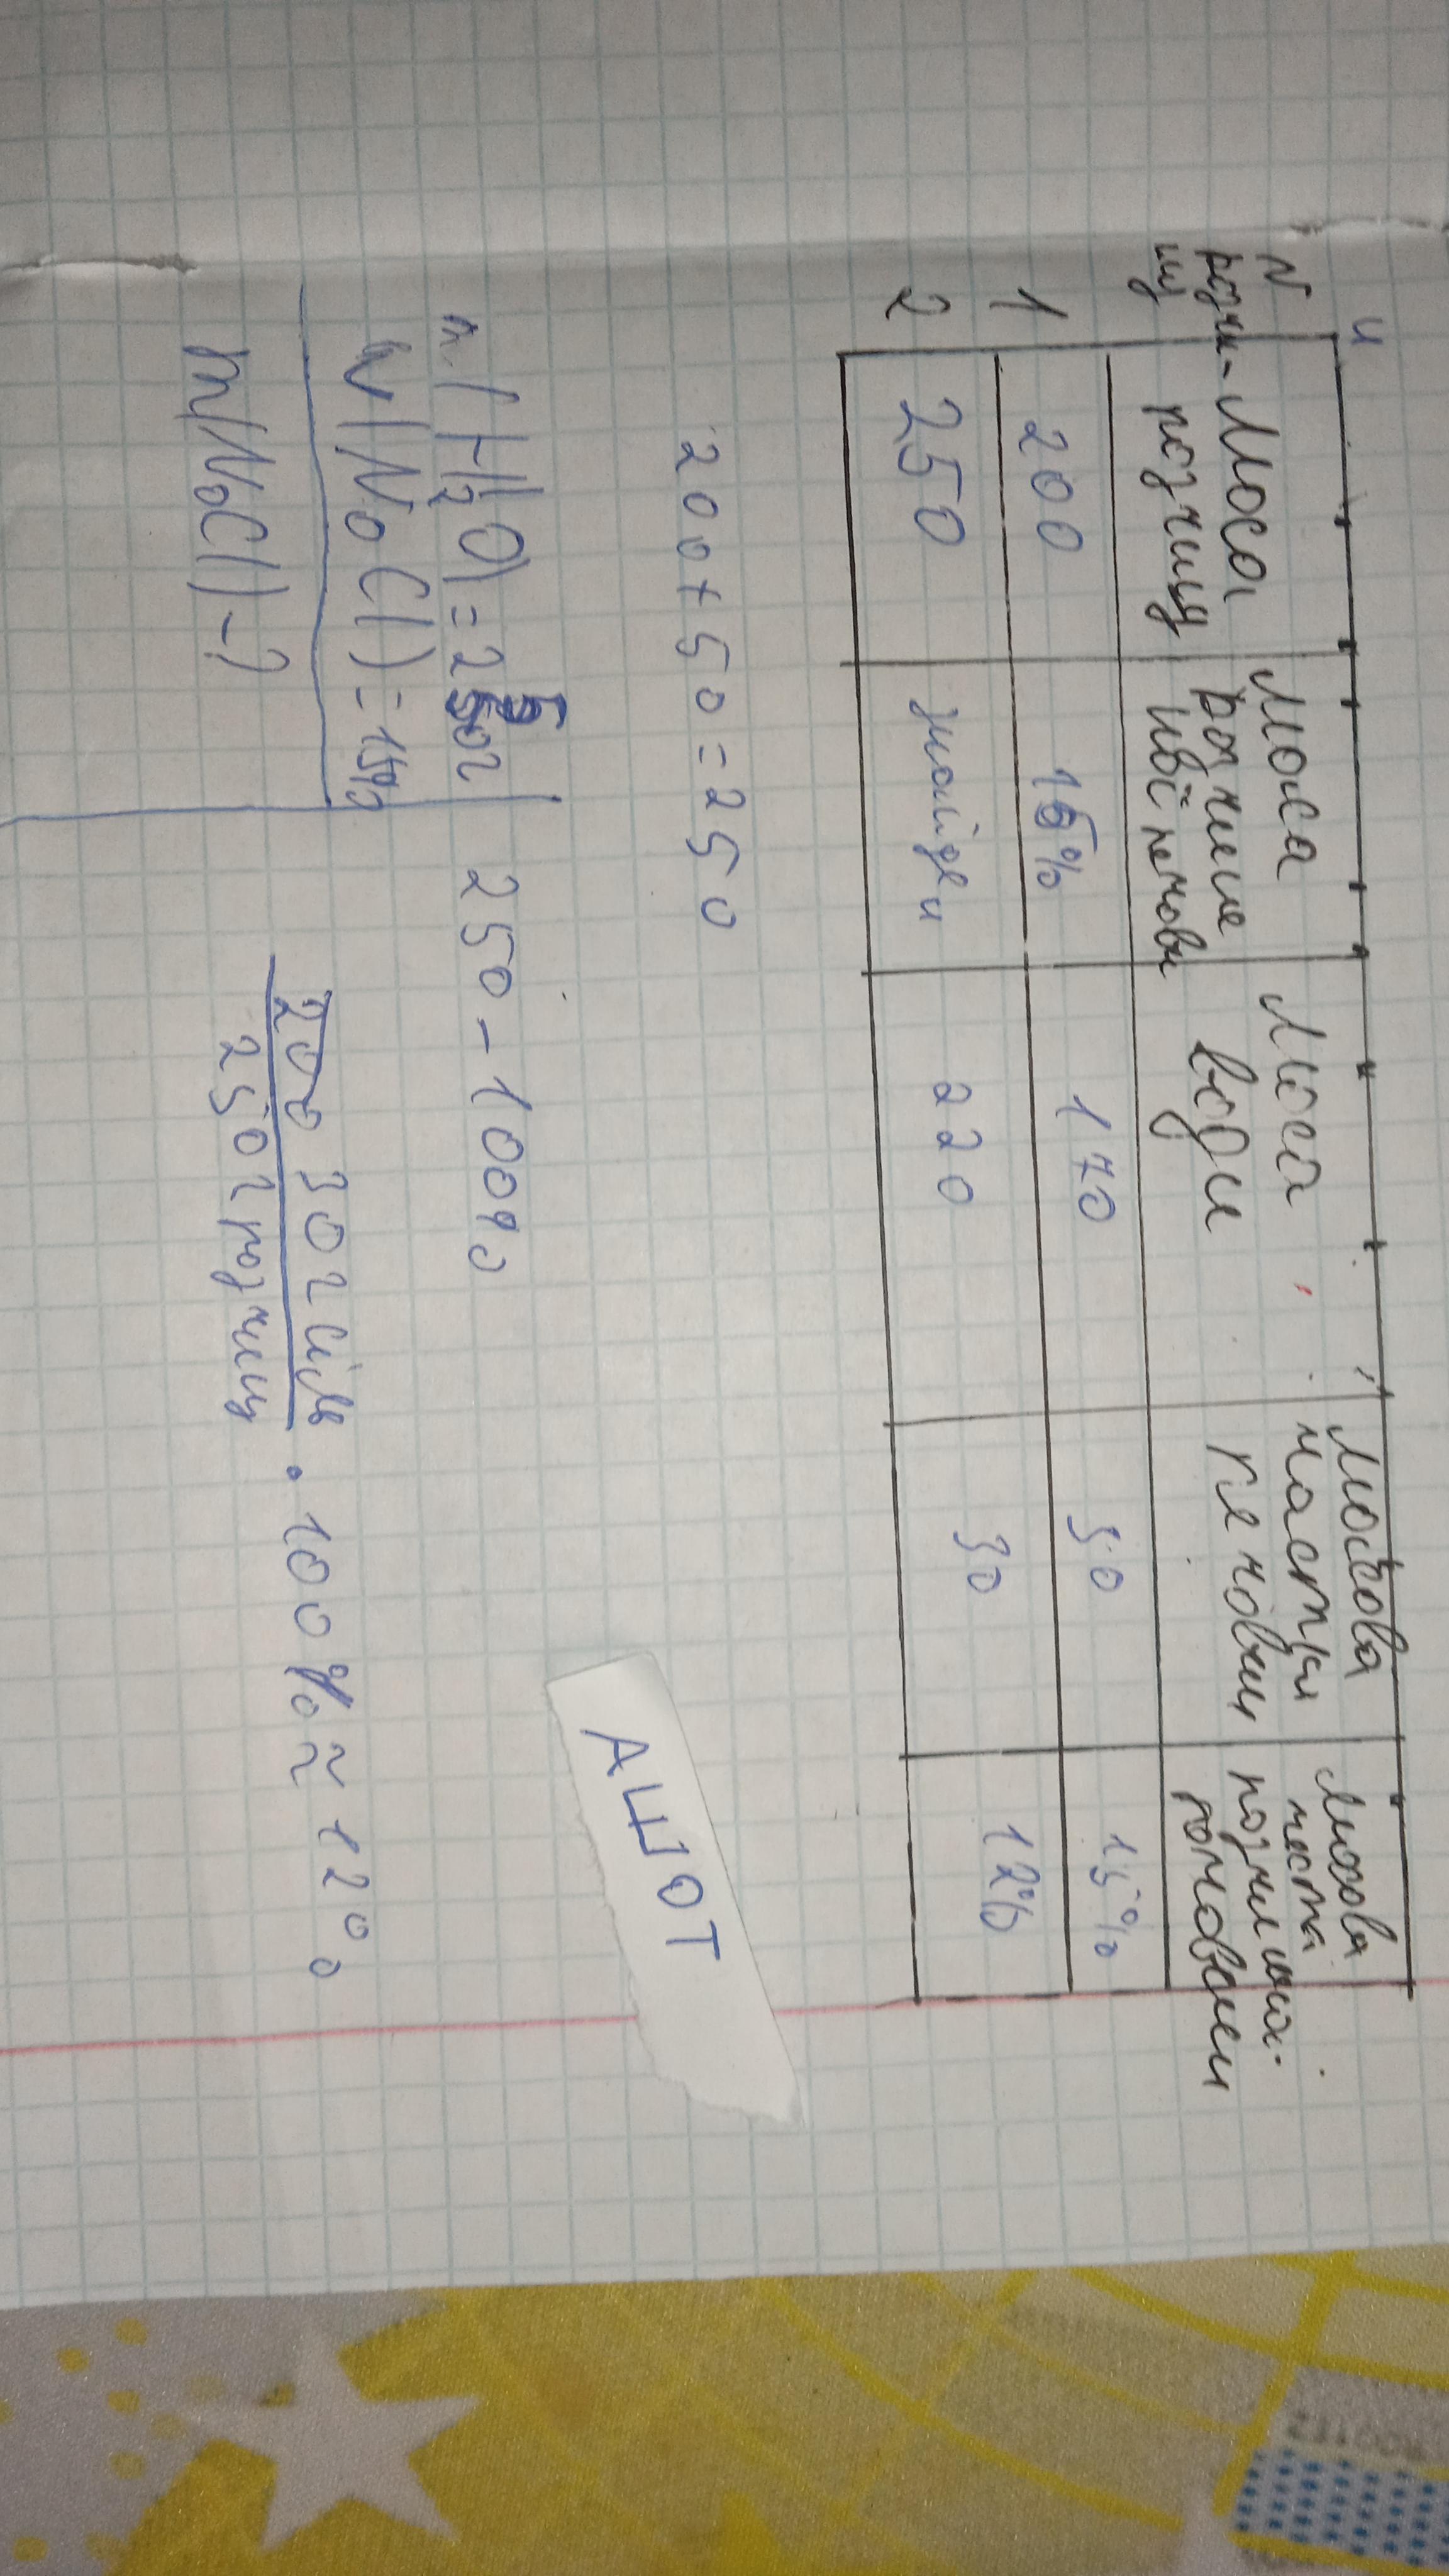 N розчи-ну
Маса розчину
Маса розчине-ної речови
Маса води
Масова частка речовини
Масова частка розчинної речовини
1 200 15% 170 30 15%
2 250 знайди 220 30 12%
200+50=250
m(H₂O)=250г 250 – 100%
w(NaCl)=15%
m(NaCl)-?
30г сіль
250г розчину
· 100% ≈ 12%
АШОТ